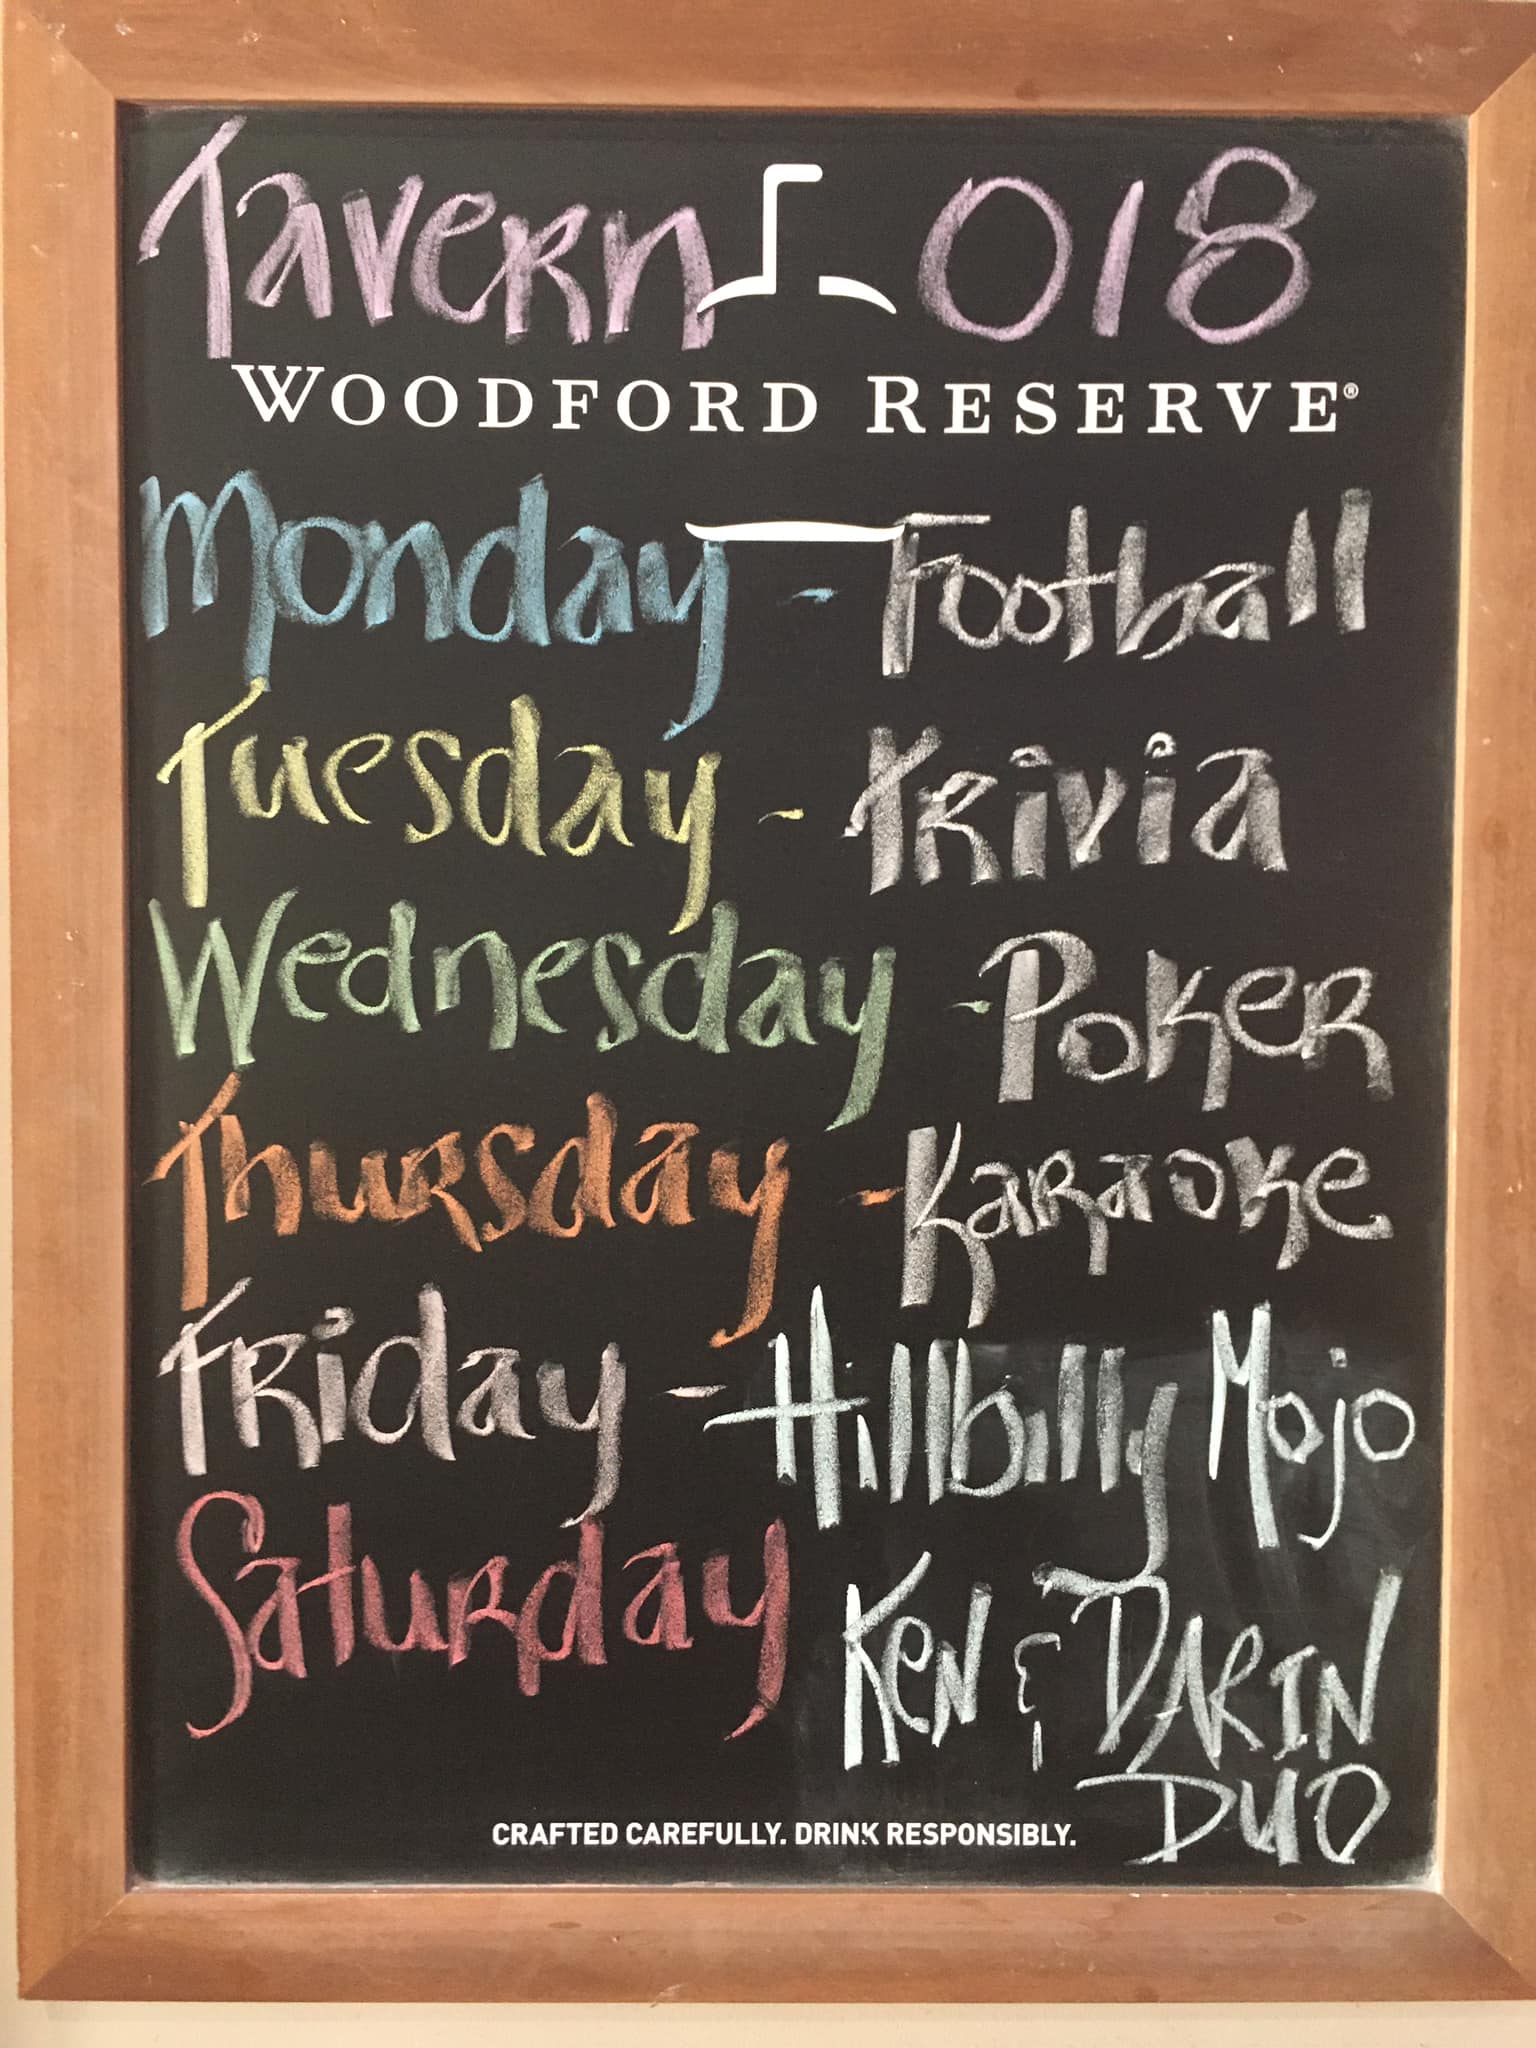 Tavern 018
WOODFORD RESERVE®
Monday - Football
Tuesday - Trivia
Wednesday - Poker
Thursday - Karaoke
Friday - Hillbilly Mojo
Saturday Ken & Darin
Duo
CRAFTED CAREFULLY. DRINK RESPONSIBLY.